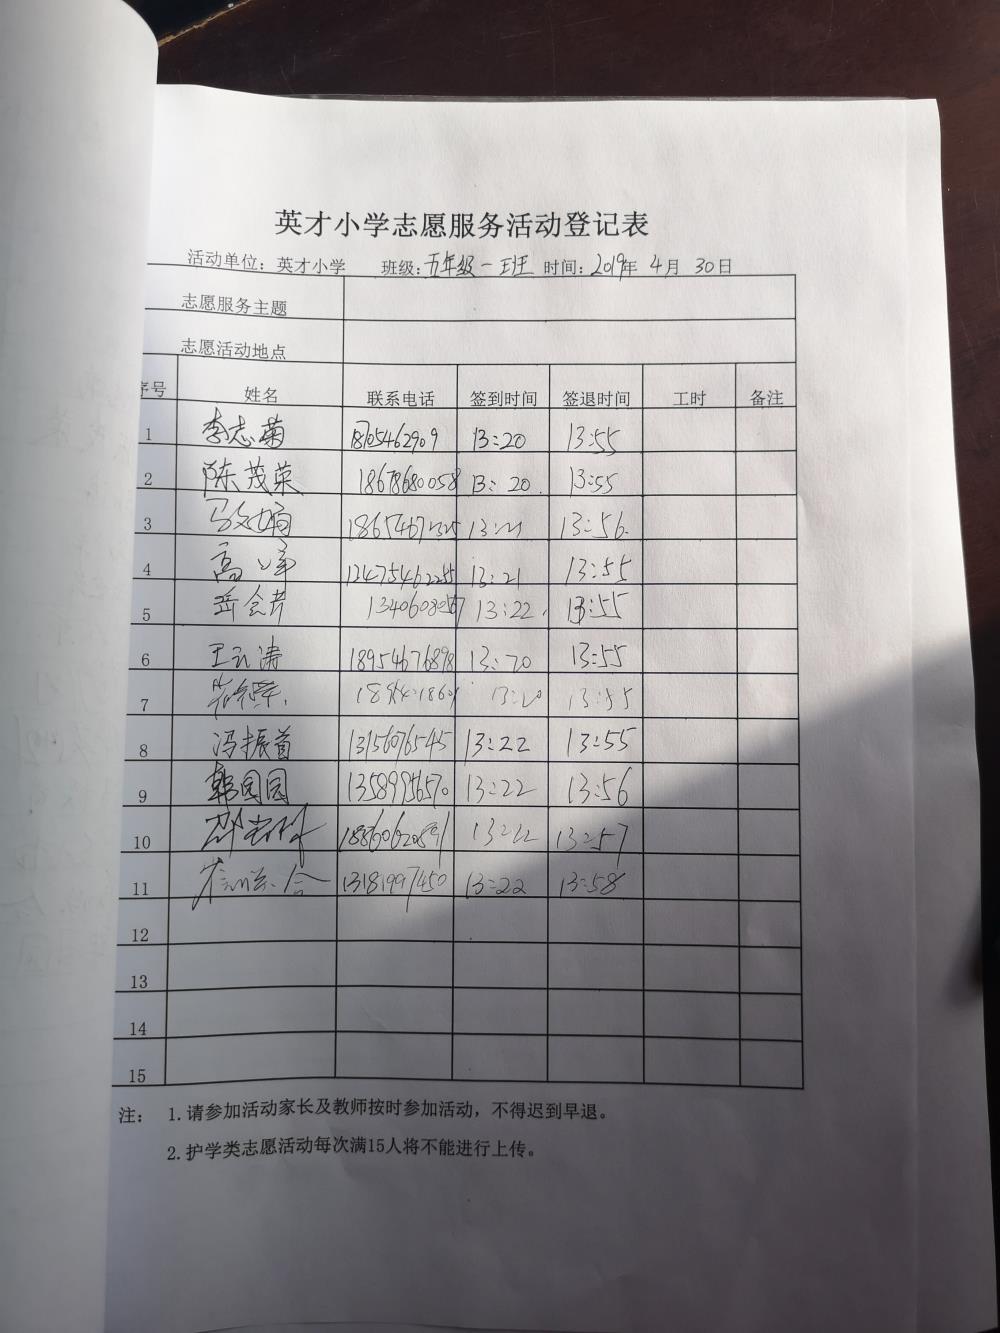 英才小学志愿服务活动登记表
活动单位：英才小学 班级：五年级一班 时间：2019年 4月 30日
志愿服务主题
志愿活动地点
序号 姓名 联系电话 签到时间 签退时间 工时 备注
1 李志菊 18705462909 13:20 13:55
2 陈茂荣 18678680058 13:20 13:55
3 13:21 13:56
4 高峰 13:21 13:55
5 13:22 13:55
6 王云涛 18954676898 13:20 13:55
7 13:20 13:55
8 冯振首 13156076545 13:22 13:55
9 韩园园 13589956570 13:22 13:56
10 13:22 13:57
11 13181997450 13:22 13:58
12
13
14
15
注： 1.请参加活动家长及教师按时参加活动，不得迟到早退。
2.护学类志愿活动每次满15人将不能进行上传。